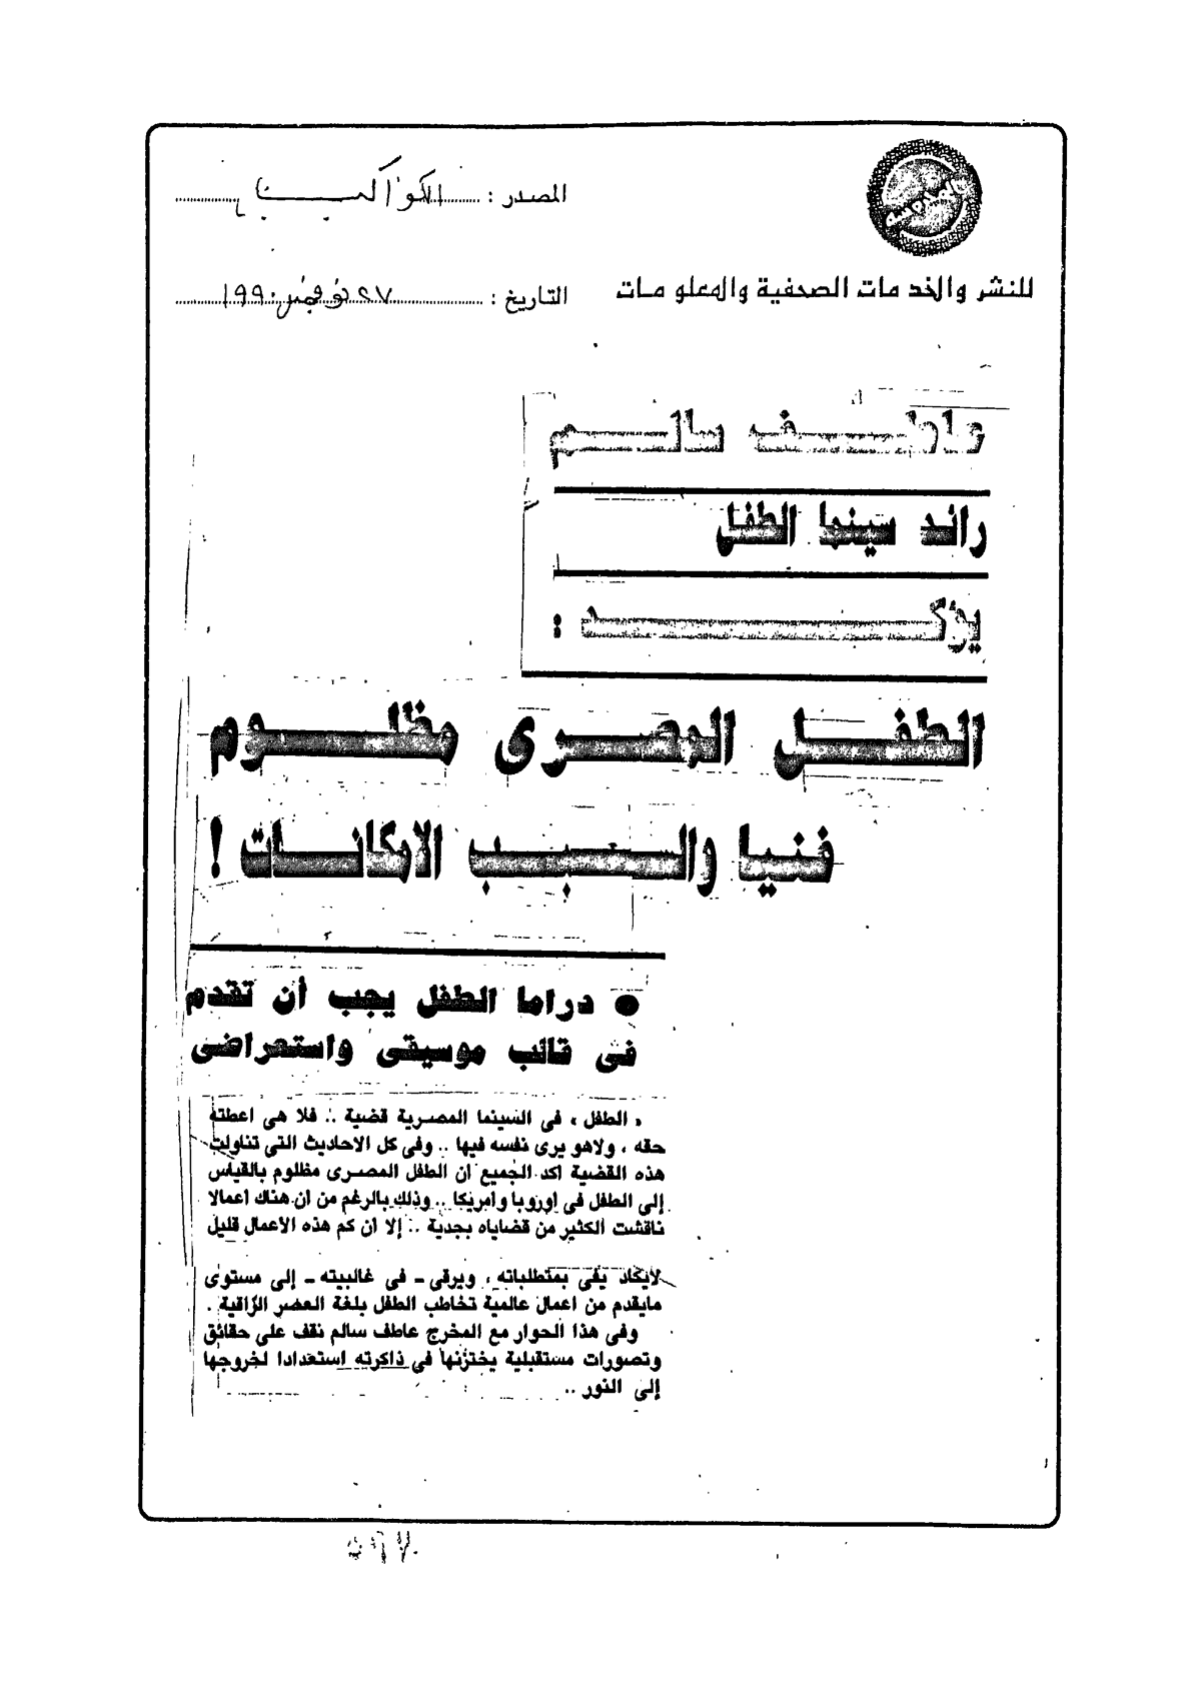 المصدر : الكواكب
للنشر والخدمات الصحفية والمعلومات
التاريخ : ٢٧ نوفمبر ١٩٩٠
عاطف سالم
رائد سينما الطفل
يؤكد :
الطفل المصرى مظلوم
فنيا والسبب الامكانات !
● دراما الطفل يجب أن تقدم
فى قالب موسيقى واستعراضى
« الطفل » فى السينما المصرية قضية .. فلا هى اعطته
حقه ، ولاهو يرى نفسه فيها .. وفى كل الاحاديث التى تناولت
هذه القضية اكد الجميع ان الطفل المصرى مظلوم بالقياس
إلى الطفل فى اوروبا وامريكا .. وذلك بالرغم من ان هناك اعمالا
ناقشت الكثير من قضاياه بجدية .. إلا ان كم هذه الأعمال قليل
لايكاد يفى بمتطلباته ، ويرقى - فى غالبيته - إلى مستوى
مايقدم من اعمال عالمية تخاطب الطفل بلغة العصر الراقية .
وفى هذا الحوار مع المخرج عاطف سالم نقف على حقائق
وتصورات مستقبلية يختزنها فى ذاكرته استعدادا لخروجها
إلى النور ..